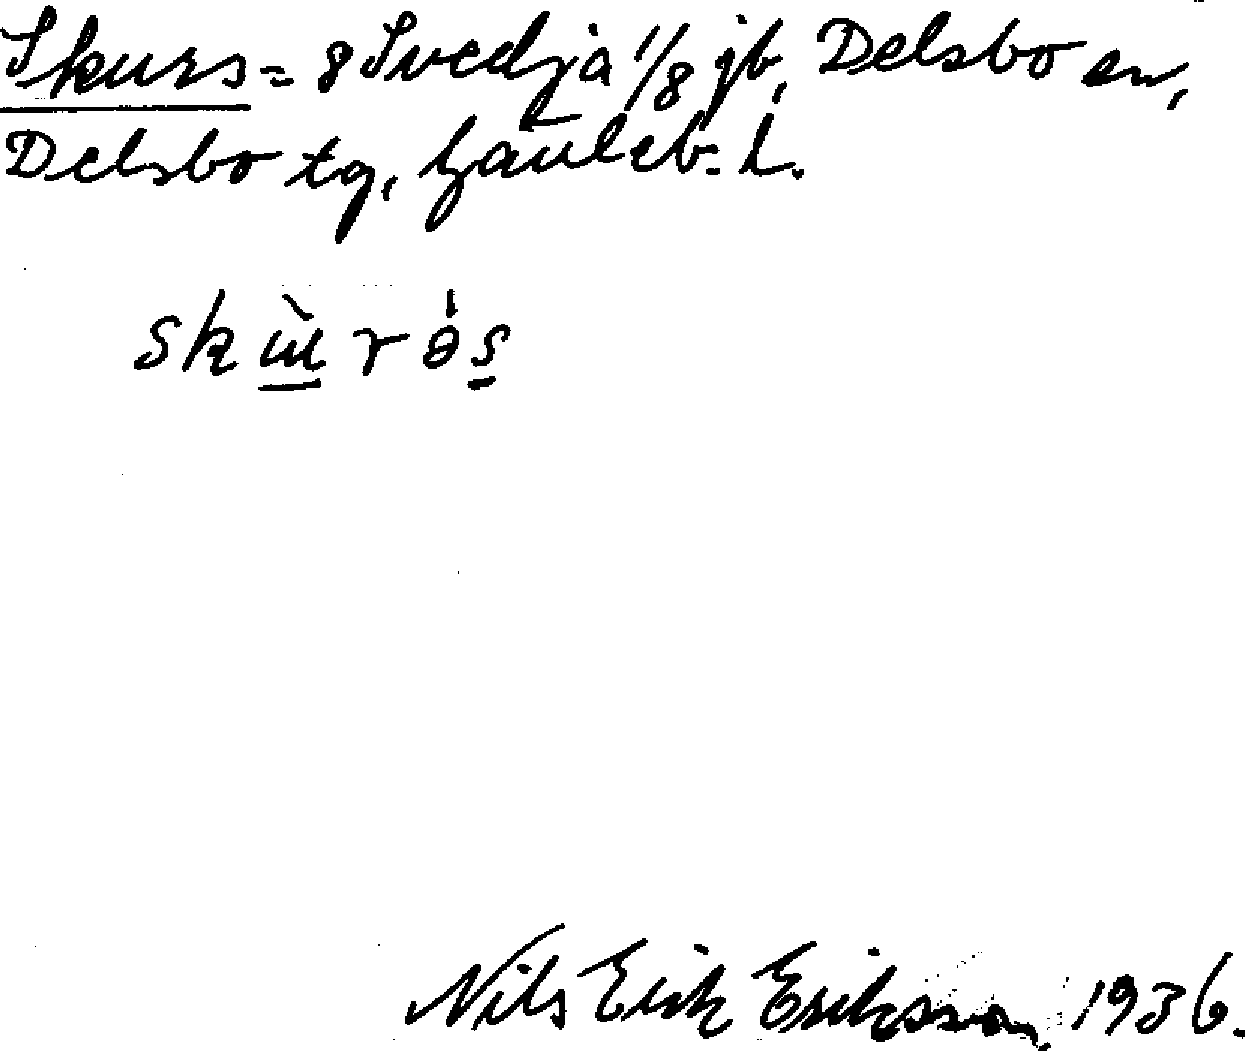 Skurs = 8 Svedja 1/8 jb, Delsbo sn,
Delsbo tg, Gävleb. l.
Nils Erik Eriksson 1936.